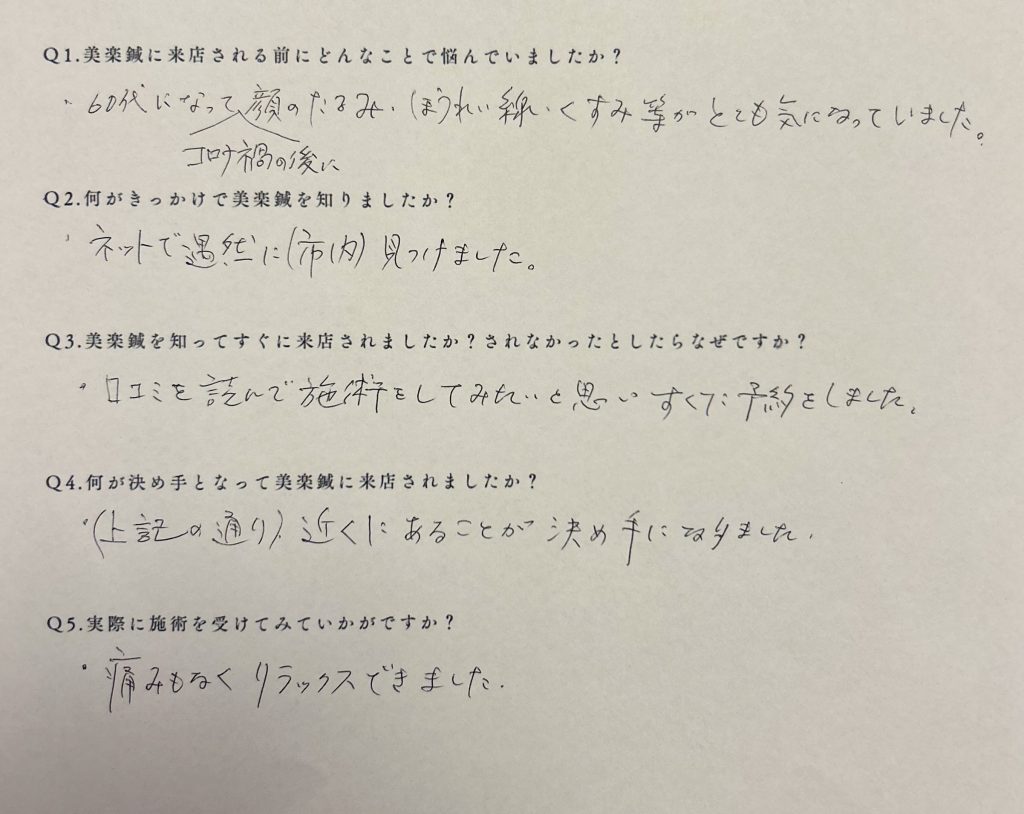 Q1.美楽鍼に来店される前にどんなことで悩んでいましたか？
・60代になって顔のたるみ、ほうれい線、くすみ等がとても気になっていました。
コロナ禍の後に
Q2.何がきっかけで美楽鍼を知りましたか？
・ネットで偶然に(市内)見つけました。
Q3.美楽鍼を知ってすぐに来店されましたか？されなかったとしたらなぜですか？
・口コミを読んで施術をしてみたいと思いすぐに予約をしました。
Q4.何が決め手となって美楽鍼に来店されましたか？
・(上記の通り)近くにあることが決め手になりました。
Q5.実際に施術を受けてみていかがですか？
・痛みもなくリラックスできました。